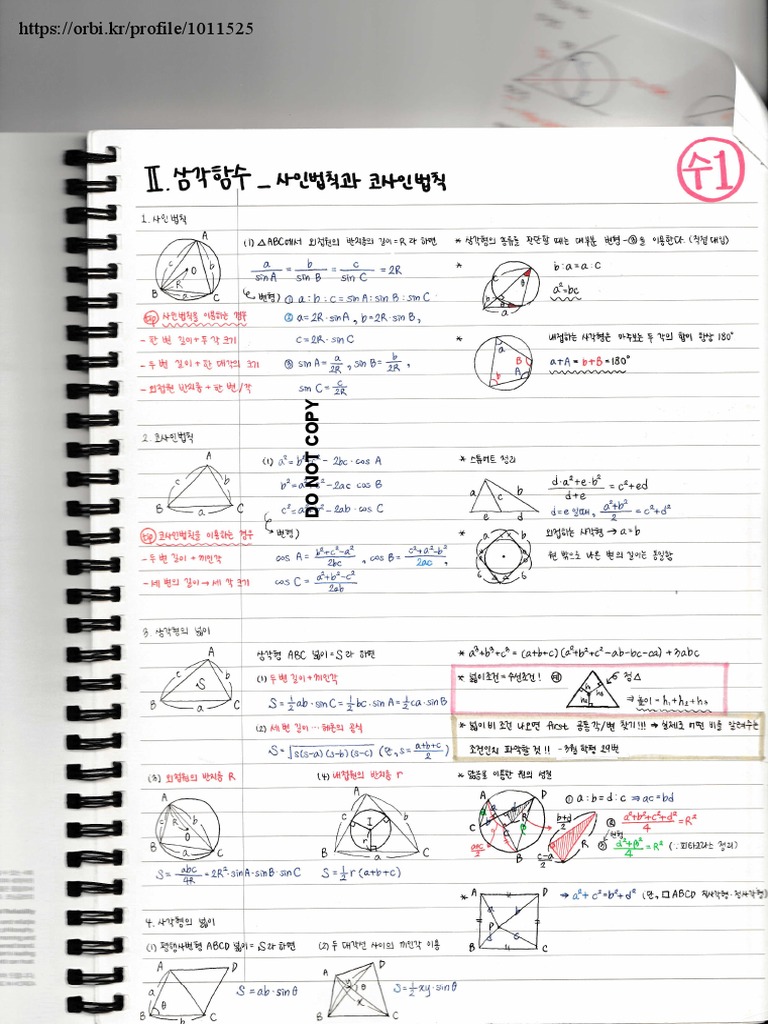 https://orbi.kr/profile/1011525
수1
Ⅱ. 삼각함수 - 사인법칙과 코사인법칙
1. 사인법칙
(1) △ABC에서 외접원의 반지름의 길이=R라 하면
a/sinA = b/sinB = c/sinC = 2R
변형) ① a:b:c = sinA:sinB:sinC
② a=2R·sinA, b=2R·sinB,
c=2R·sinC
③ sinA=a/2R, sinB=b/2R,
sinC=c/2R
A
B
C
O
R
a
b
c
사인법칙을 이용하는 경우
- 한 변 길이+두 각 크기
- 두 변 길이+한 대각의 크기
- 외접원 반지름+한 변/각
* 삼각형의 모양을 판단할 때는 대부분 변형-③을 이용한다. (직접 대입)
* b:a=a:c
a²=bc
* 내접하는 사각형은 마주보는 두 각의 합이 항상 180°
a+A=b+B=180°
DO NOT COPY
2. 코사인법칙
(1) a²=b²+c²-2bc·cosA
b²=a²+c²-2ac cosB
c²=a²+b²-2ab·cosC
변형)
cosA=(b²+c²-a²)/2bc, cosB=(c²+a²-b²)/2ac,
cosC=(a²+b²-c²)/2ab
A
B
C
a
b
c
코사인법칙을 이용하는 경우
- 두 변 길이+끼인각
- 세 변의 길이→세 각 크기
* 스튜어트 정리
(d·a²+e·b²)/(d+e)=c²+ed
d=e일때, (a²+b²)/2=c²+d²
a
c
b
e
d
* 외접하는 사각형→a=b
원 밖으로 나온 변의 길이는 동일함
3. 삼각형의 넓이
삼각형 ABC 넓이=S라 하면
(1) 두 변 길이+끼인각
S=½ab·sinC=½bc·sinA=½ca·sinB
(2) 세 변 길이…헤론의 공식
S=√s(s-a)(s-b)(s-c) (단, s=(a+b+c)/2)
A
B
C
S
a
b
c
* a³+b³+c³=(a+b+c)(a²+b²+c²-ab-bc-ca)+3abc
* 넓이조건=수선조건! 예)
정△
⇒높이=h₁+h₂+h₃
* 넓이비 조건 나오면 first 공통각/변 찾기!!! → 실제로 어떤 비를 알려주는
조건인지 파악할 것!!
(3) 외접원의 반지름 R
S=abc/4R=2R²·sinA·sinB·sinC
(4) 내접원의 반지름 r
S=½r(a+b+c)
* 닮음로 이룬 원의 성질
① a:b=d:c ⇒ac=bd
② (a²+b²+c²+d²)/4=R²
* ⇒a²+c²=b²+d² (단, □ABCD 직사각형·정사각형)
4. 사각형의 넓이
(1) 평행사변형 ABCD 넓이=S라 하면
S=ab·sinθ
(2) 두 대각선 사이의 끼인각 이용
S=½xy·sinθ